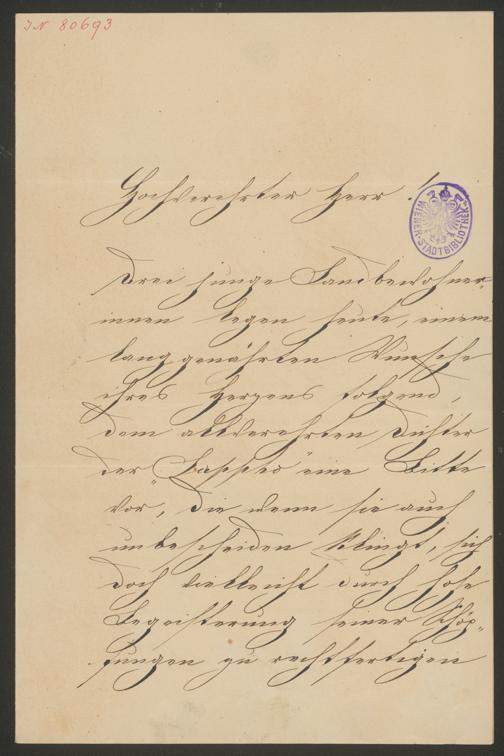 IN 80693
Hochverehrter Herr!
WIENER STADTBIBLIOTHEK
Drei junge Landbewohner-
innen legen heute, einem
lang genährten Wunsche
ihres Herzens folgend,
dem allverehrten Dichter
der „Sappho" eine Bitte
vor, die wenn sie auch
unbescheiden klingt, sich
doch vielleicht durch hohe
Begeisterung seiner Schöp-
fungen zu rechtfertigen